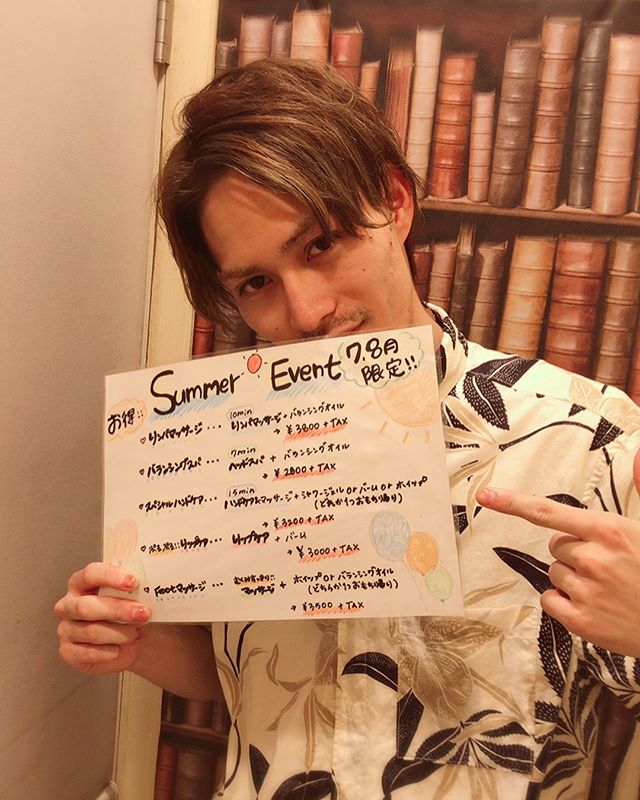 Summer Event 7.8月
限定!!
お得!!
♡ リンパマッサージ… 10min リンパマッサージ + バランシングオイル
→ ¥3800 + TAX
♡ バランシングスパ… 7min ヘッドスパ + バランシングオイル
→ ¥2800 + TAX
♡ スペシャルハンドケア… 15min ハンドケア&マッサージ + シャワージェル or バーム or ホイップ
(どれか1つおもち帰り)
→ ¥3200 + TAX
リップケア… リップケア + バーム
→ ¥3000 + TAX
♡ Footマッサージ… むくみすっきり!! マッサージ + ホイップ or バランシングオイル
(どちらか1つおもち帰り)
→ ¥3500 + TAX